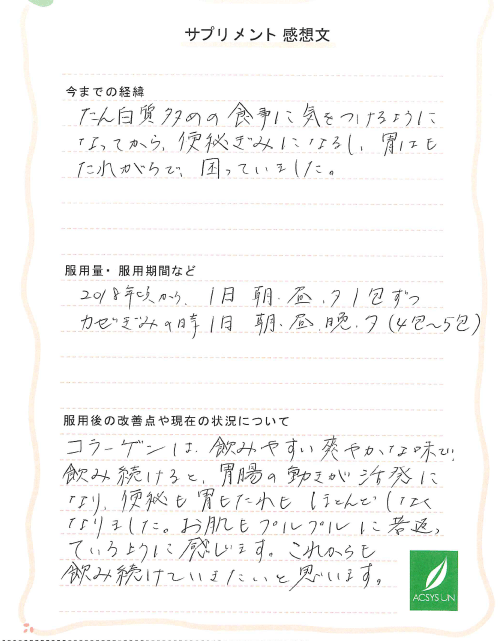 サプリメント 感想文
今までの経緯
たん白質多めの食事に気をつけるように
なってから、便秘ぎみになるし、胃はも
たれがちで、困っていました。
服用量・服用期間など
2018年頃から、1日 朝・昼・夕 1包ずつ
カゼぎみの時 1日 朝・昼・晩・夕 (4包〜5包)
服用後の改善点や現在の状況について
コラーゲンは、飲みやすい爽やかな味で、
飲み続けると、胃腸の動きが活発に
なり、便秘も胃もたれも ほとんどしなく
なりました。お肌もプルプルに若返っ
ているように感じます。これからも
飲み続けていきたいと思います。
ACSYSUN